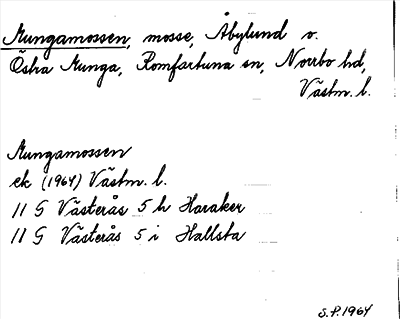 Mungamossen, mosse, Åbylund o.
Östra Munga, Romfartuna sn, Norrbo hd,
Västm. l.
Mungamossen
ek (1964) Västm. l.
11 G Västerås 5 h Haraker
11 G Västerås 5 i Hallsta
S.P. 1964